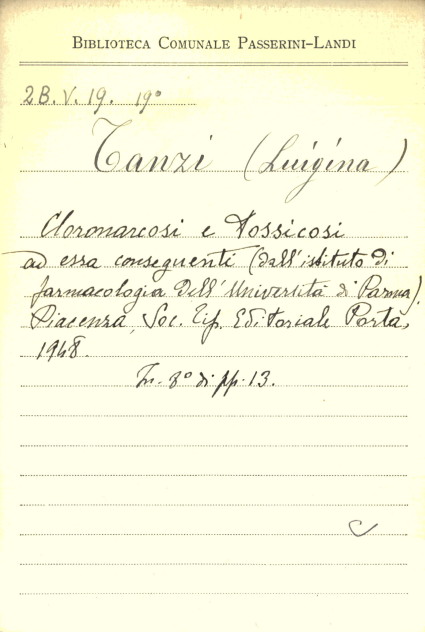 BIBLIOTECA COMUNALE PASSERINI-LANDI
2B. V. 19. 19°
Tanzi (Luigina)
Cloronarcosi e Tossicosi
ad essa conseguenti (dall'istituto di
farmacologia dell'Università di Parma).
Piacenza, Soc. Tip. Editoriale Porta,
1948.
In. 8° di pp. 13.
C